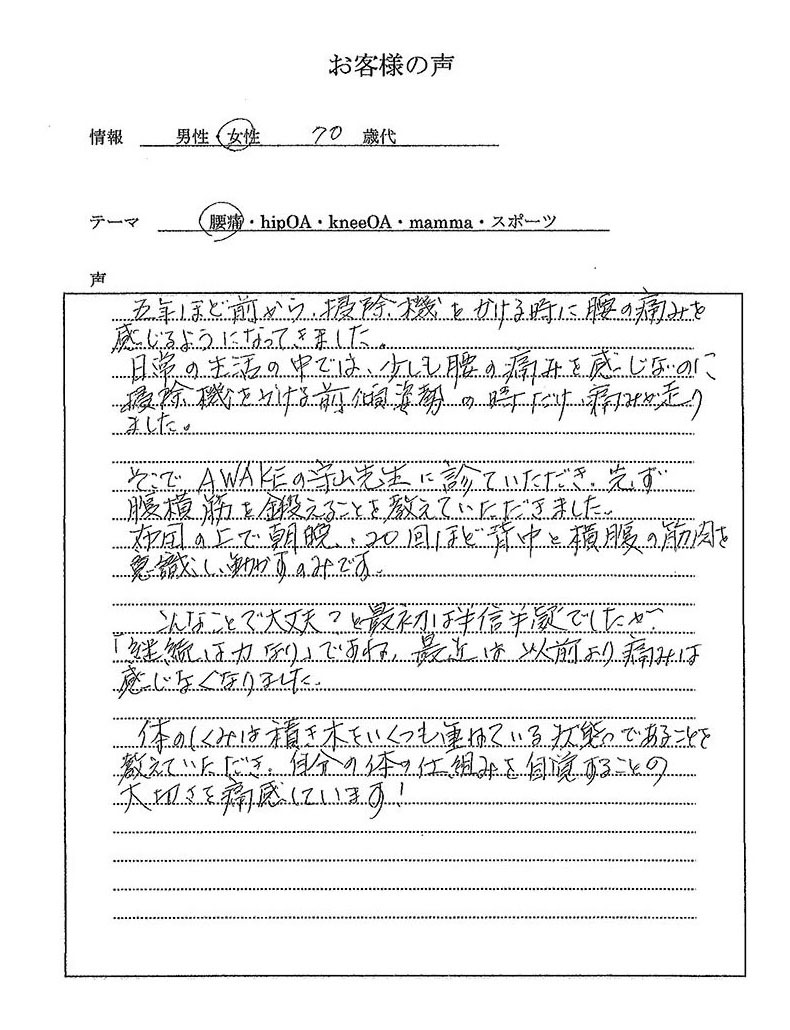 お客様の声
情報 男性・女性 70 歳代
テーマ 腰痛・hipOA・kneeOA・mamma・スポーツ
声
五年ほど前から、掃除機をかける時に腰の痛みを
感じるようになってきました。
日常の生活の中では、少しも腰の痛みを感じないのに
掃除機をかける前傾姿勢の時だけ痛みが走り
ました。
そこで AWAKEの守山先生に診ていただき、先ず
腹横筋を鍛えることを教えていただきました。
布団の上で朝晩、20回ほど背中と横腹の筋肉を
意識し動かすのみです。
こんなことで大丈夫?と最初は半信半疑でしたが
「継続は力なり」ですね。最近は以前より痛みは
感じなくなりました。
体のしくみは積き木をいくつも重ねている状態であることを
教えていただき、自分の体の仕組みを自覚することの
大切さを痛感しています!